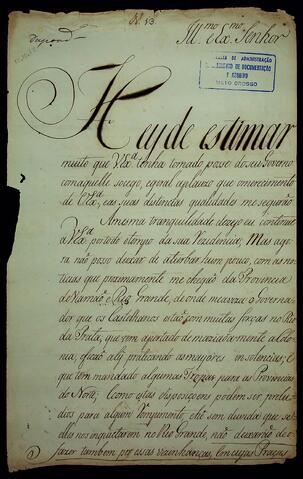 N. 13.
Ill.mo e Ex.mo Senhor
DE ADMINISTRAÇÃO
DE DOCUMENTAÇÃO
E ARQUIVO
MATO GROSSO
Hey de estimar
muito que VEx.ª tenha tomado posse do seu Governo
com aquelle socego, e geral aplauzo que o merecimento
de VEx.ª, e as suas distintas qualidades me segurão
A mesma tranquilidade dezejo eu continue
a VEx.ª por todo o tempo da sua Rezidencia; Mas ago
ra não posso deixar de alterbar hum pouco, com as no
ticias que proximamente me chegão da Provincia
de Viamão e Rio Grande, de onde me avizao o Governa
dor que os Castelhanos estão com muitas forças no Rio
da Prata, que tem apertado demaziadamente a Colo
nia, e ficão ali praticando as mayores insolencias; e
que tem mandado algumas Tropas para as Provincias
do Norte; e como estas dispoziçoens podem ser prelu
dios para algum rompimento, e hé sem duvida que se
elles nos inquietarem no Rio Grande, não deixarão de o
fazer tambem por essas vezinhanças, em cujas Praças